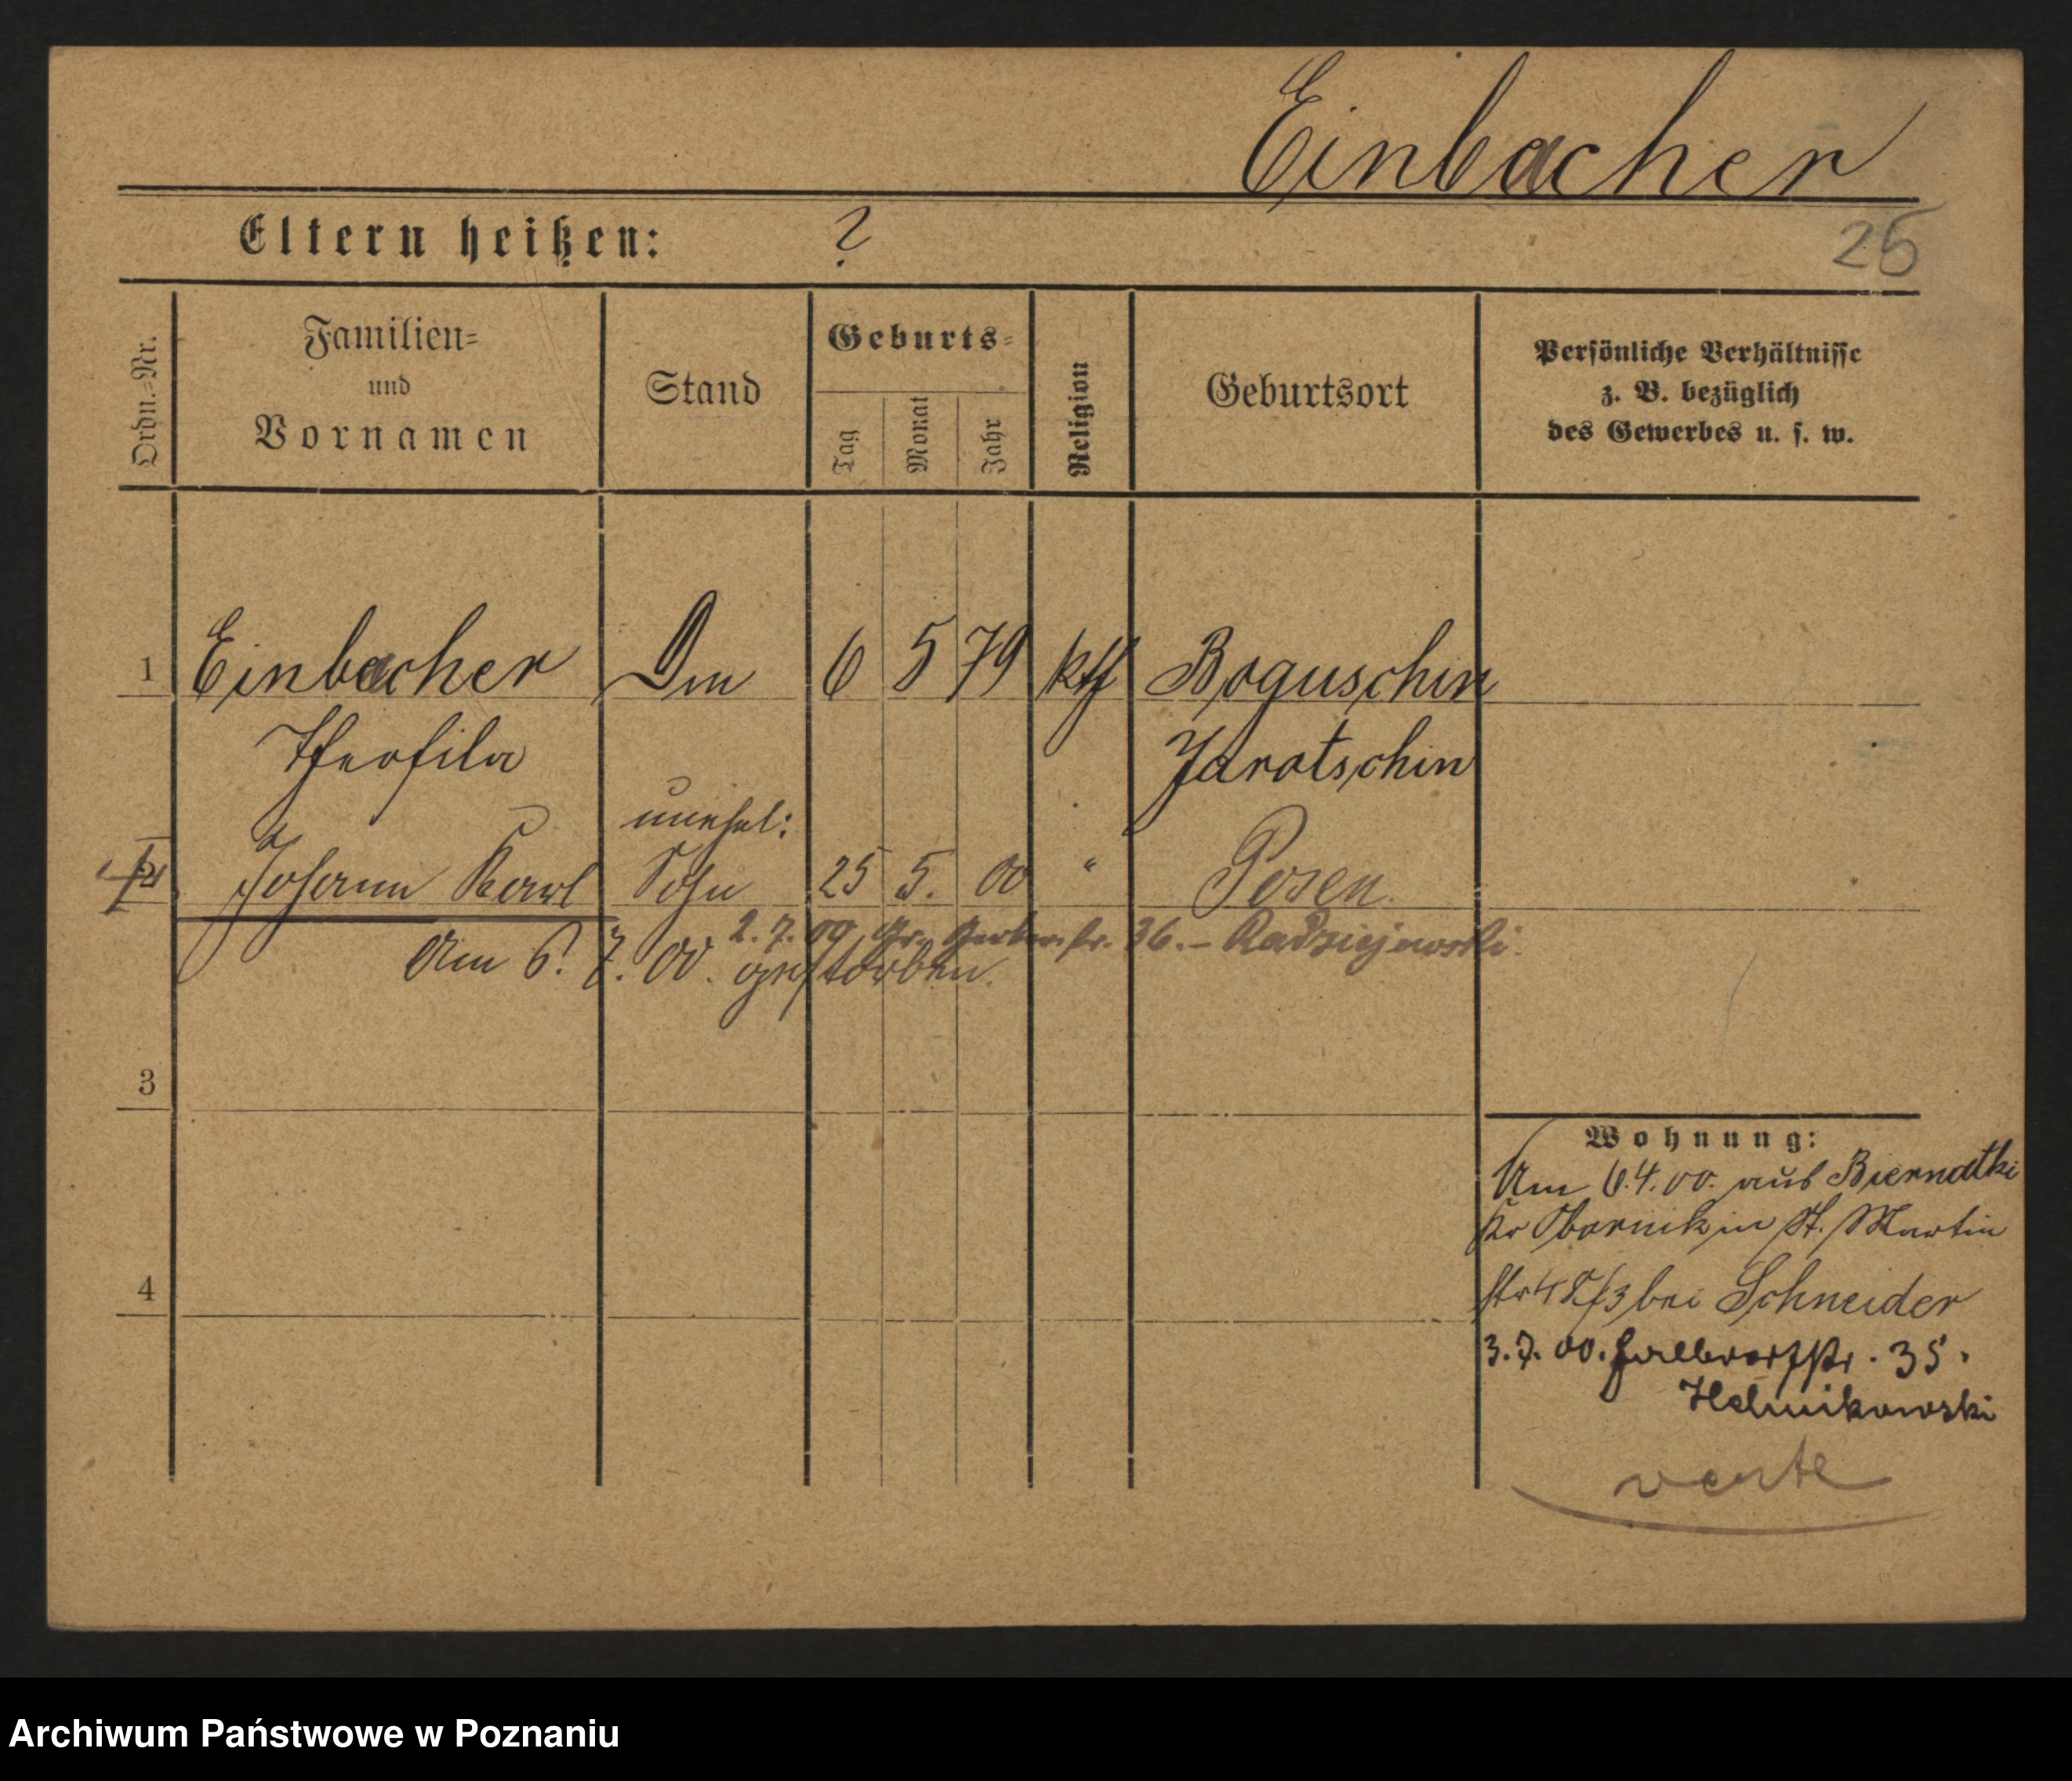 Einbacher
Eltern heißen: ?
25
Ordn.=Nr.
Familien=
und
Vornamen
Stand
Geburts=
Tag
Monat
Jahr
Religion
Geburtsort
Persönliche Verhältnisse
z. B. bezüglich
des Gewerbes u. s. w.
1 Einbacher Dm 6 5 79 kth Boguschin
Theofila Jarotschin
unehel:
2 Johann Karl Sohn 25 5. 00 " Posen.
2. 7. 00 Gr. Gerberstr. 36. – Radziejewski.
Am 6. 7. 00. gestorben.
3
Wohnung:
Am 6.4.00. aus Biernatki
Kr Obornik in St. Martin
4
str 48/3 bei Schneider
3.7.00. Halbdorfstr. 35.
verte
Archiwum Państwowe w Poznaniu